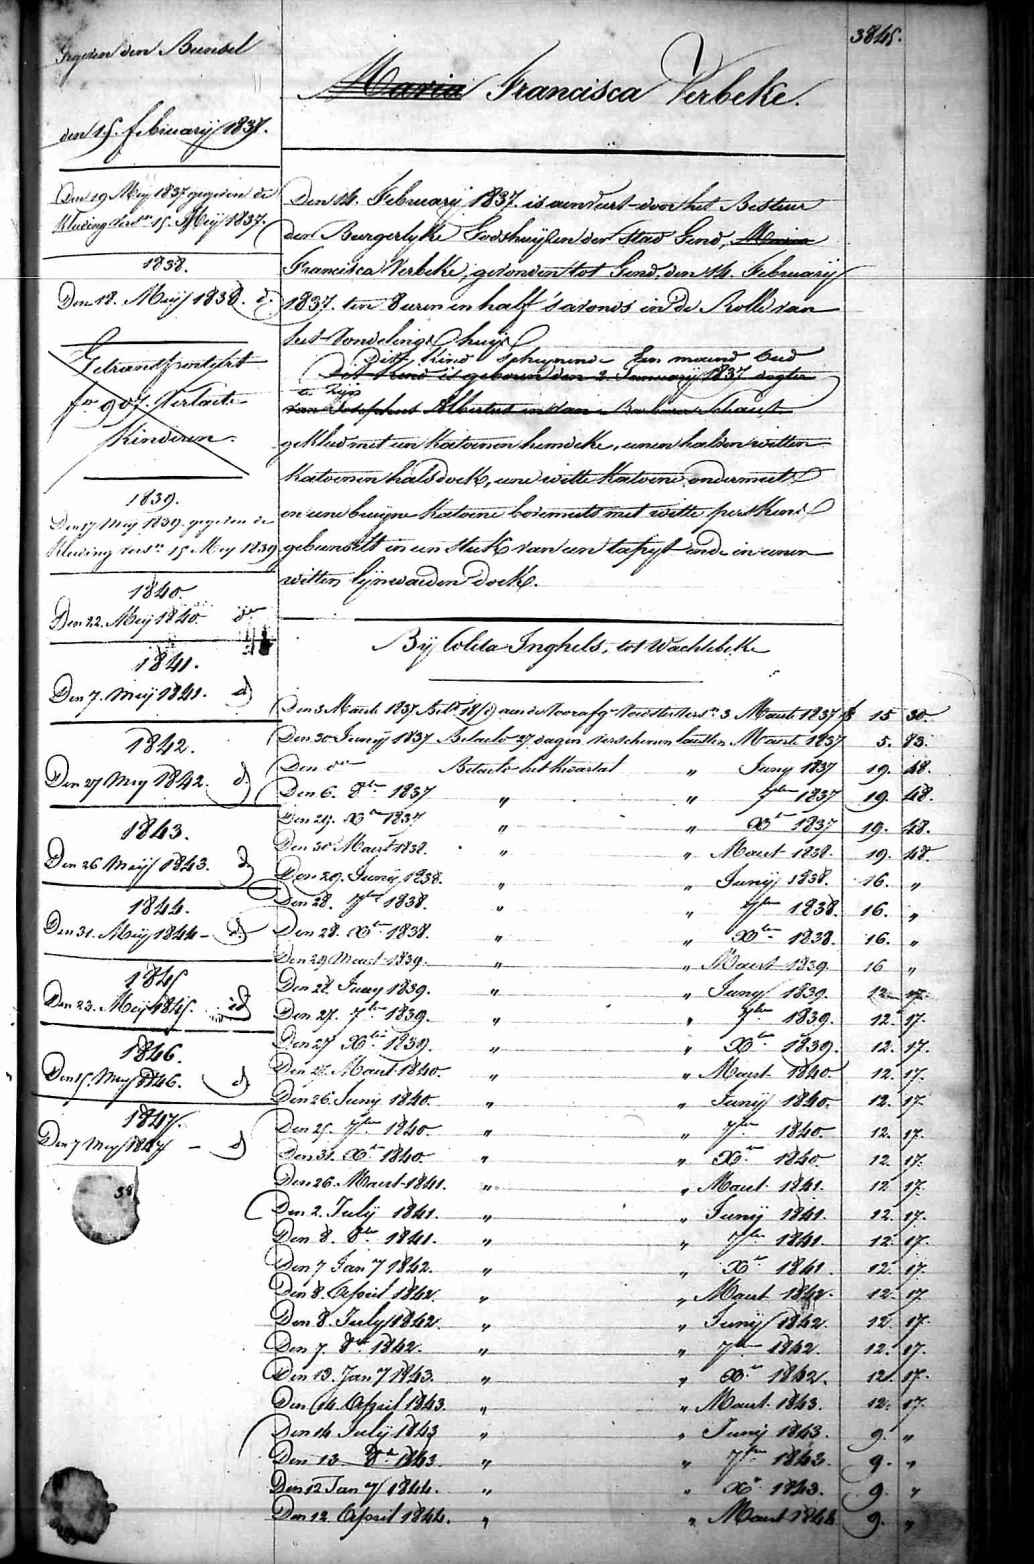 3845.
Gegeven den Bundel
den 15. february 1837.
Den 19 Mey 1837 gegeven de
Kleeding versn 15. Meij 1837.
1838.
Den 18. Meij 1838. d.
Getransporteert
fo 907. Verlaete
Kinderen.
1839.
Den 17 Mey 1839. gegeven de
Kleeding versn 15 Mey 1839
1840.
Den 22. Meij 1840. do
1841.
Den 7. Meij 1841. d)
1842.
Den 27 Mey 1842. d)
1843.
Den 26 Meij 1843. d
1844.
Den 31. Meij 1844 - d)
1845
Den 23. Meij 1845. id
1846.
Den 15. Mey 1846. d)
1847.
Den 7 Mey 1847 - d)
38
Maria Francisca Verbeke.
Den 14. February 1837. is aenveert door het Bestuer
der Burgerlyke Godshuijsen der Stad Gend, Maria
Francisca Verbeke, gevonden tot Gend, den 14. February
1837. ten 8 uren en half s'avonds in de Rolle van
het Vondelings huijs
Dit Kind schynende Een maend oud
Dit Kind is geboren den 2 January 1837 dogter
te zyn
van Josephus Albertus en van Barbara Schaut
gekleed met een katoenen hemdeke, eenen halven witten
katoenen halsdoek, eene witte katoene ondermuts
en eene bruyne katoene bovenmuts met witte perkens
gebundelt in een stuk van een tapyt ende in eenen
witten lynwaeden doek.
By Coleta Inghels, tot Wachtebeke
Den 3 Maert 1837 Bett 18/c) aen de voorafg Voedster versn 3 Maert 1837 f 15 30.
Den 30 Junij 1837 Betaelt 27 dagen verschenen laetsten Maert 1837 5. 83.
Den do Betaelt het kwartael " Juny 1837 19. 48.
Den 6. 8ber 1837 " " 7ber 1837 19. 48.
Den 29. Xber 1837 " " Xber 1837 19. 48.
Den 30 Maert 1838. " " Maert 1838. 19. 48.
Den 29. Junij 1838. " " Junij 1838. 16. "
Den 28. 7ber 1838. " " 7ber 1838. 16. "
Den 28. Xber 1838. " " Xber 1838. 16. "
Den 29 Maert 1839. " " Maert 1839. 16 "
Den 28. Juny 1839. " " Juny 1839. 12 17.
Den 27. 7ber 1839. " " 7ber 1839. 12. 17.
Den 27 Xber 1839. " " Xber 1839. 12. 17.
Den 27. Maert 1840. " " Maert 1840 12. 17.
Den 26. Juny 1840. " " Junij 1840. 12. 17.
Den 25. 7ber 1840. " " 7ber 1840. 12. 17.
Den 31. Xber 1840 " " Xber 1840 12. 17.
Den 26. Maert 1841. " " Maert 1841. 12 17.
Den 2. July 1841. " " Junij 1841. 12. 17.
Den 8. 8ber 1841. " " 7ber 1841. 12. 17.
Den 7 Jany 1842. " " Xber 1841 12. 17.
Den 8. April 1842. " " Maert 1842. 12. 17.
Den 8. July 1842. " " Junij 1842. 12. 17.
Den 7. 8ber 1842. " " 7ber 1842. 12. 17.
Den 13. Jany 1843. " " Xber 1842. 12. 17.
Den 14. April 1843. " " Maert 1843. 12. 17.
Den 14 July 1843 " " Juny 1843. 9. "
Den 13 8ber 1843. " " 7ber 1843. 9. "
Den 12 Jany 1844. " " Xber 1843. 9. "
Den 12. April 1844. " " Maert 1844 9. "